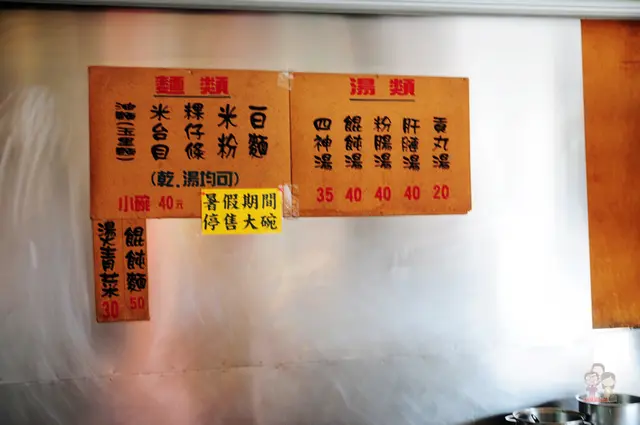 麵類
白麵
米粉
粿仔條
米台目
油麵(玉里麵)
(乾、湯均可)
小碗 40元
暑假期間
停售大碗
湯類
貢丸湯 20
肝膶湯 40
粉腸湯 40
餛飩湯 40
四神湯 35
餛飩麵 50
燙青菜 30